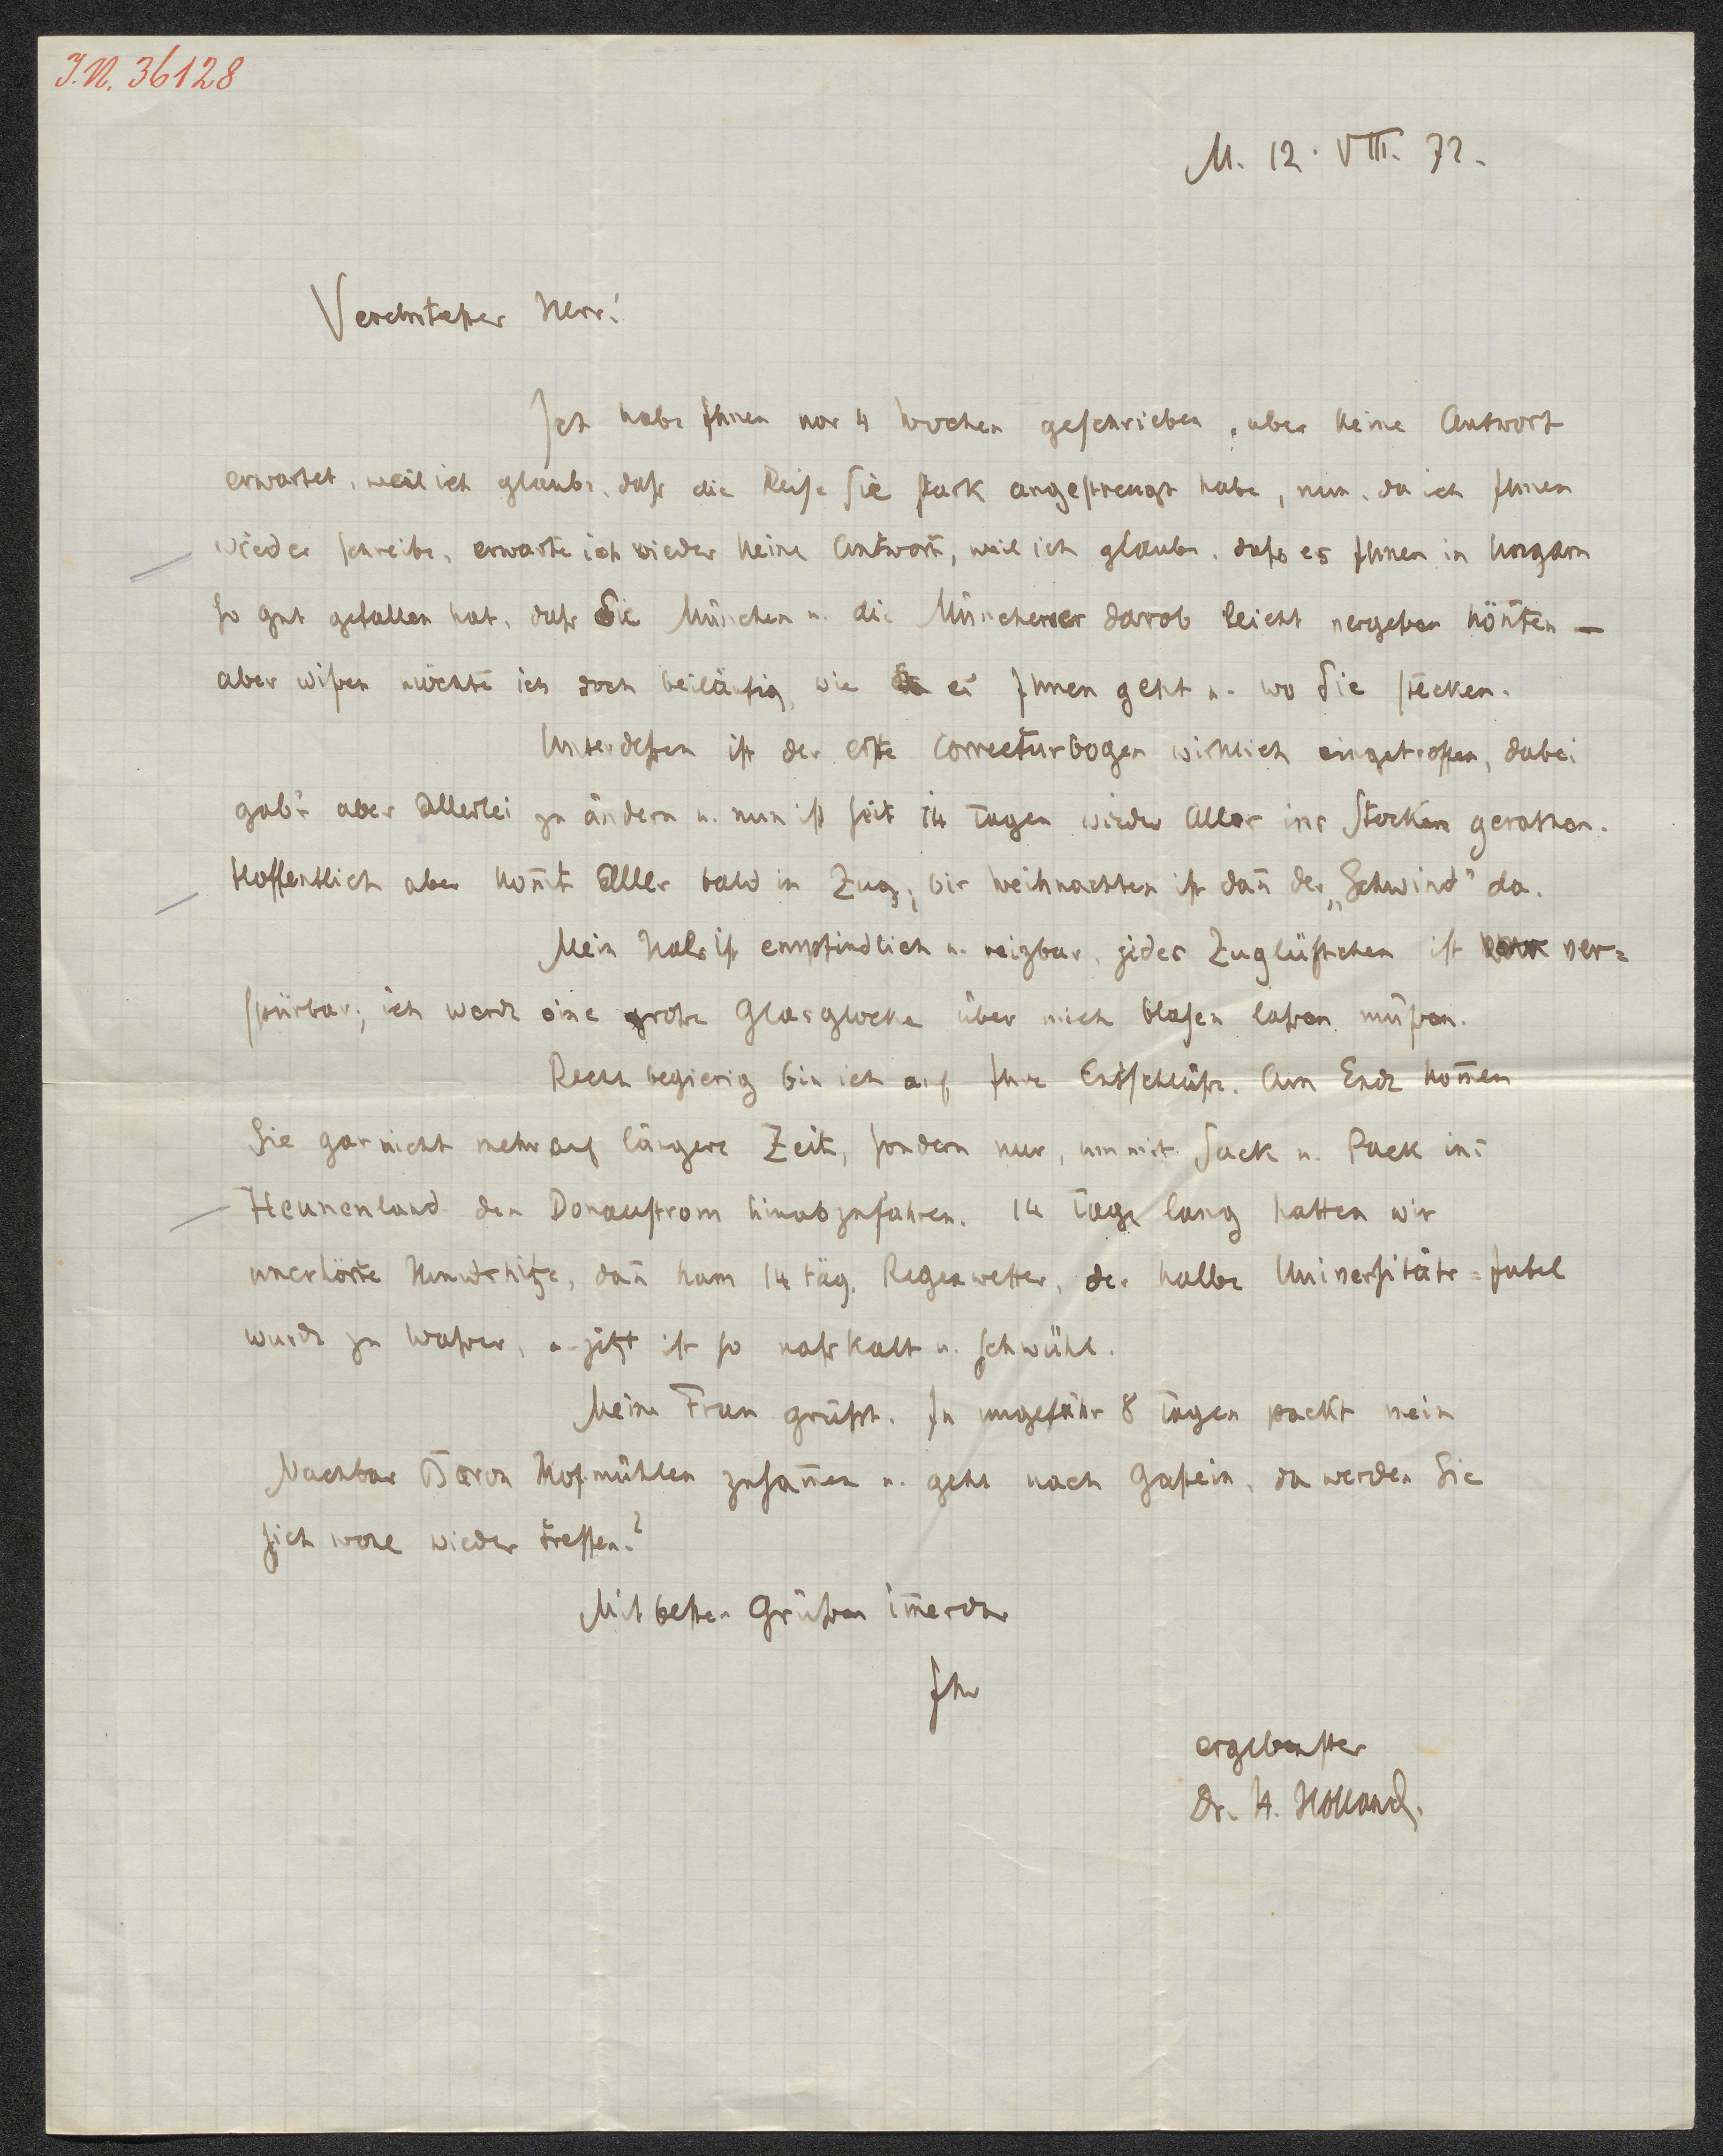 J.N. 36128
M. 12. VIII. 72.
Verehrtester Herr!
Ich habe Ihnen vor 4 Wochen geschrieben, aber keine Antwort
erwartet, weil ich glaube, daß die Reise Sie stark angestrengt habe, nun, da ich Ihnen
wieder schreibe, erwarte ich wieder keine Antwort, weil ich glaube, daß es Ihnen in Ungarn
so gut gefallen hat, daß Sie München u. die Münchener darob leicht vergeßen kön̄ten —
aber wißen möchte ich doch beiläufig, wie es Ihnen geht u. wo Sie stecken.
Unterdeßen ist der erste Correcturbogen wirklich eingetroffen, dabei
gab's aber Allerlei zu ändern u. nun ist seit 14 Tagen wieder Alles ins Stocken gerathen.
Hoffentlich aber kom̄t Alles bald in Zug, bis Weihnachten ist dan̄ der „Schwind" da.
Mein Hals ist empfindlich u. reizbar, jedes Zuglüftchen ist ver=
spürbar; ich werde eine große Glasglocke über mich blasen laßen müßen.
Recht begierig bin ich auf Ihre Entschlüße. Am Ende kom̄en
Sie gar nicht mehr auf längere Zeit, sondern nur, um mit Sack u. Pack ins
Heunenland den Donaustrom hinabzufahren. 14 Tage lang hatten wir
unerhörte Hundshitze, dan̄ kam 14 täg. Regenwetter, der halbe Universitäts=Jubel
wurde zu Waßer, u. jetzt ist so naßkalt u. schwühl.
Meine Frau grüßt. In ungefähr 8 Tagen packt mein
Nachbar Baron Hofmühlen zusam̄en u. geht nach Gastein, da werden Sie
sich wohl wieder treffen?
Mit besten Grüßen im̄erdar
Ihr
ergebenster
Dr. H. Holland.